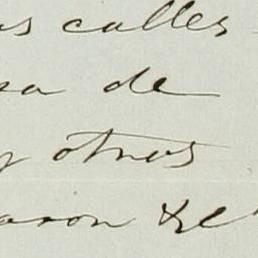 as calles
sa de
y otros
aron &e